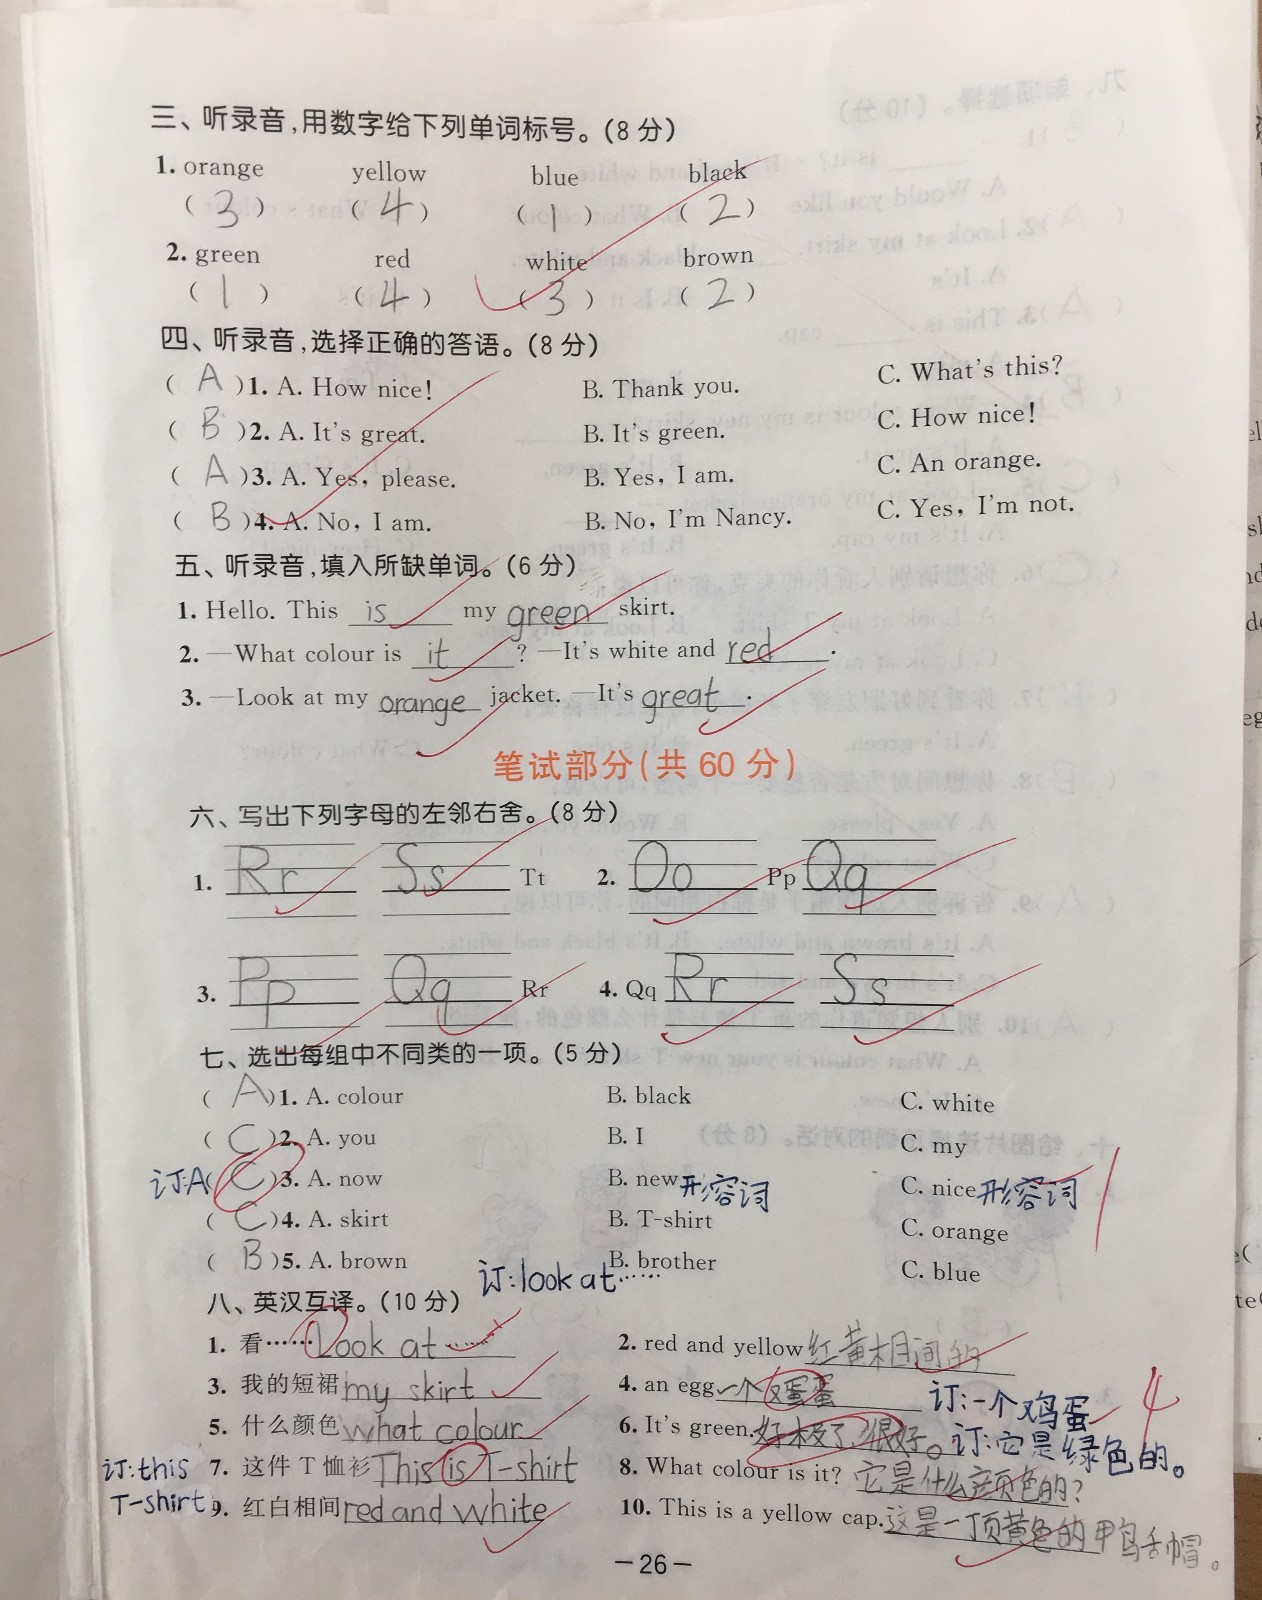 三、听录音,用数字给下列单词标号。(8 分)
1. orange yellow blue black
( 3 ) ( 4 ) ( 1 ) ( 2 )
2. green red white brown
( 1 ) ( 4 ) ( 3 ) ( 2 )
四、听录音,选择正确的答语。(8 分)
( A )1. A. How nice! B. Thank you. C. What's this?
( B )2. A. It's great. B. It's green. C. How nice!
( A )3. A. Yes, please. B. Yes, I am. C. An orange.
( B )4. A. No, I am. B. No, I'm Nancy. C. Yes, I'm not.
五、听录音,填入所缺单词。(6 分)
1. Hello. This is my green skirt.
2. —What colour is it ? —It's white and red .
3. —Look at my orange jacket. —It's great .
笔试部分(共 60 分)
六、写出下列字母的左邻右舍。(8 分)
1. Rr Ss Tt 2. Oo Pp Qq
3. Pp Qq Rr 4. Qq Rr Ss
七、选出每组中不同类的一项。(5 分)
( A )1. A. colour B. black C. white
( C )2. A. you B. I C. my
订:A( C )3. A. now B. new形容词 C. nice形容词
( C )4. A. skirt B. T-shirt C. orange
( B )5. A. brown B. brother C. blue
订:look at……
八、英汉互译。(10 分)
1. 看……Look at …… 2. red and yellow红黄相间的
3. 我的短裙my skirt 4. an egg一个蛋 订:一个鸡蛋 4
5. 什么颜色what colour 6. It's green.好极了,很好。 订:它是绿色的。
订:this 7. 这件 T 恤衫This is T-shirt 8. What colour is it? 它是什么颜色的?
T-shirt 9. 红白相间red and white 10. This is a yellow cap.这是一顶黄色的鸭舌帽。
—26—